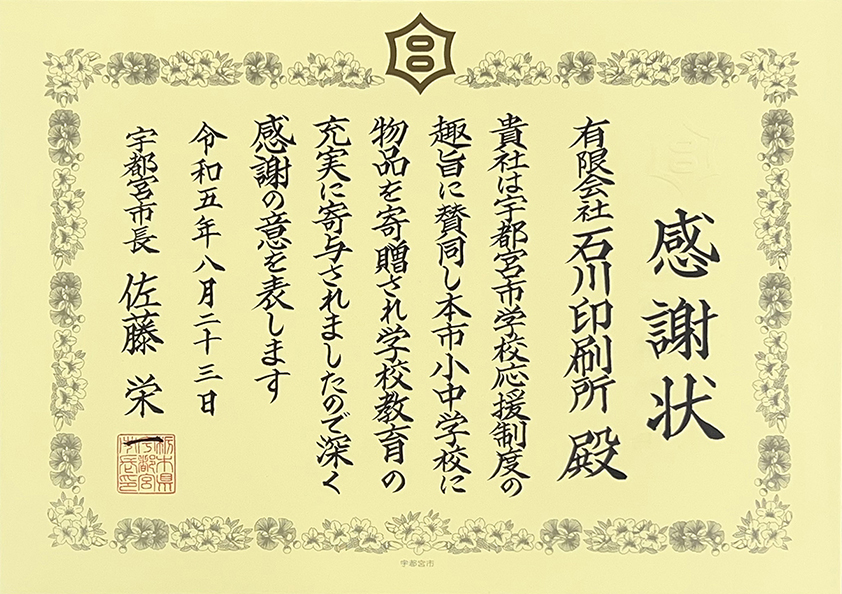 感謝状
有限会社 石川印刷所 殿
貴社は宇都宮市学校応援制度の
趣旨に賛同し本市小中学校に
物品を寄贈され学校教育の
充実に寄与されましたので深く
感謝の意を表します
令和五年八月二十三日
宇都宮市長 佐藤栄一
栃木県
宇都宮
市長印
宇都宮市